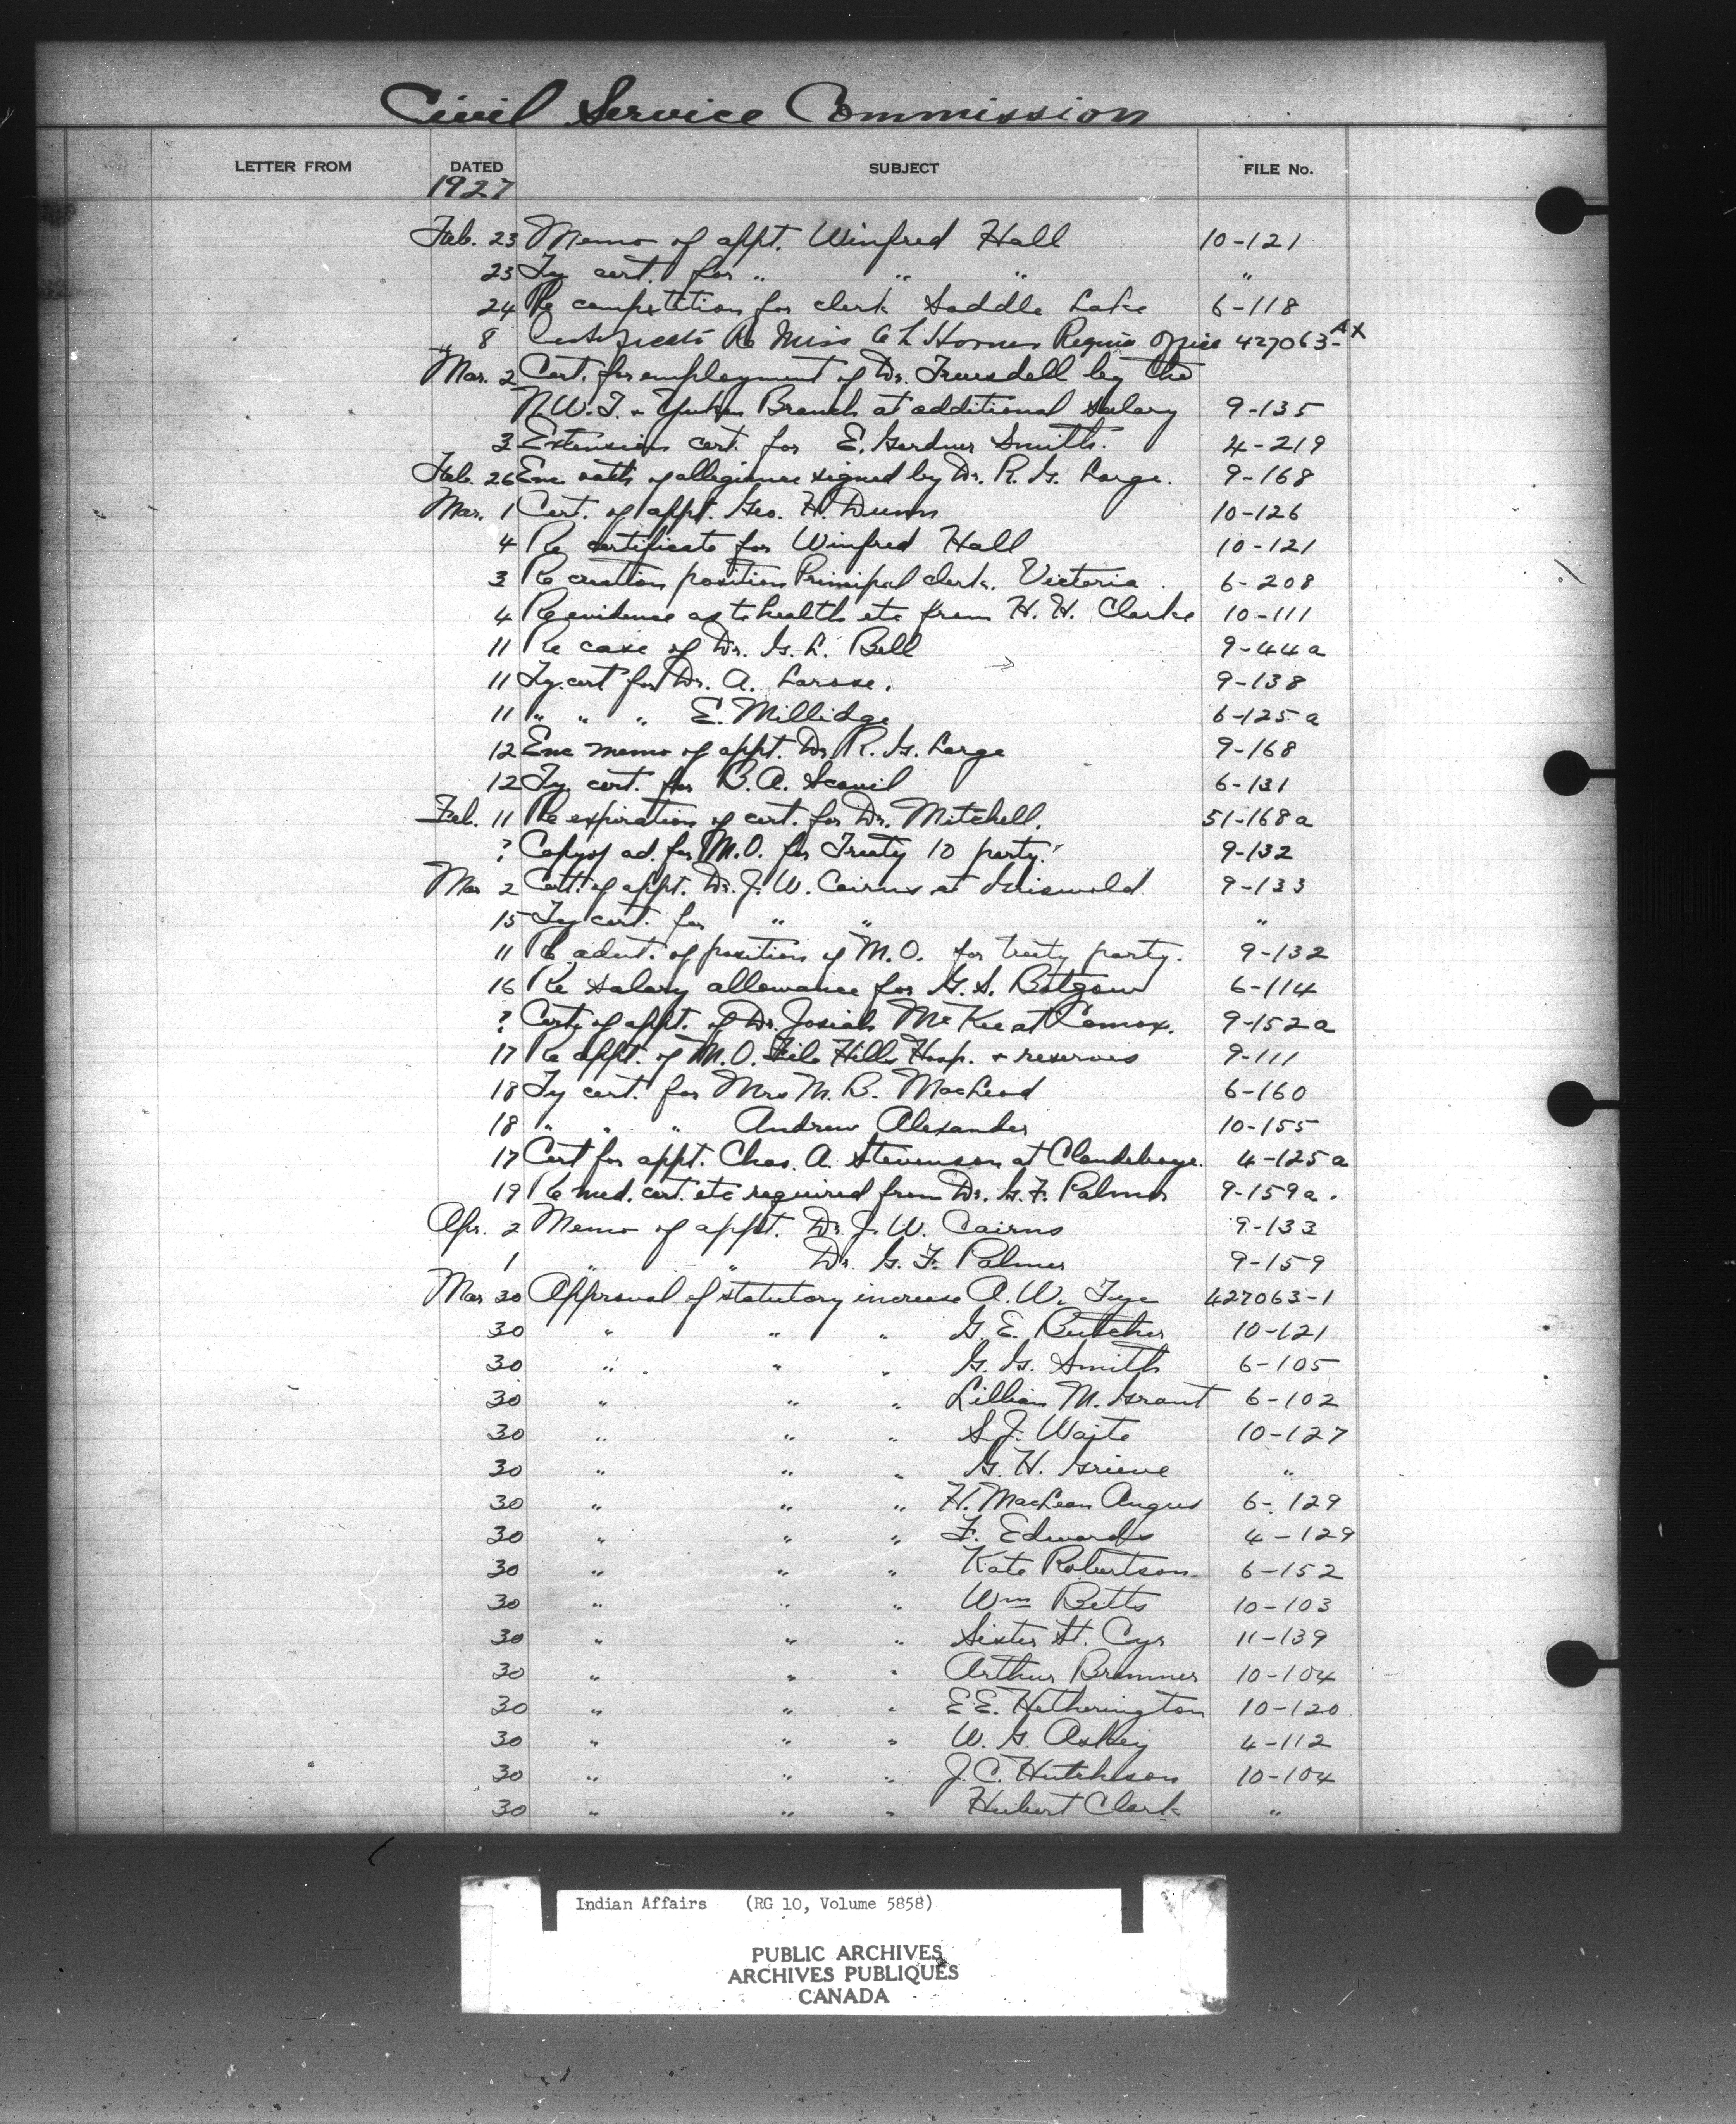 Civil Service Commission
LETTER FROM DATED SUBJECT FILE No.
1927
Feb. 23 Memo of appt. Winfred Hall 10-121
23 Ty cert. for " " " "
24 Re competition for clerk Saddle Lake 6-118
" 8 Certificate Re Miss L Horner Regina Office 427063-AX
Mar. 2 Cert. for employment of Dr. Truesdell by the
N.W.T. & Yukon Branch at additional salary 9-135
3 Extension cert. for E. Gardner Smith. 4-219
Feb. 26 Enc. oath of allegiance signed by Dr. R. G. Large. 9-168
Mar. 1 Cert. of appt. Geo. H. Dunn 10-126
4 Re certificate for Winfred Hall 10-121
3 Re creation position Principal clerk. Victoria. 6-208
4 Re evidence as to health etc from H. H. Clarke 10-111
11 Re case of Dr. G. L. Bell 9-44a
11 Ty. cert for Dr. A. Larose. 9-138
11 " " " E. Millidge 6-125a
12 Enc memo of appt. Dr R. G. Large 9-168
12 Ty. cert. for B. A. Scovil 6-131
Feb. 11 Re expiration of cert. for Dr. Mitchell. 51-168a
? Copy of ad. for M.O. for Treaty 10 party. 9-132
Mar 2 Cert. of appt. Dr. J. W. Cairns at Griswold 9-133
15 Ty cert. for " " "
11 Re advt. of position of M.O. for treaty party. 9-132
16 Re salary allowance for G. S. 6-114
? Cert of appt. of Dr. Josiah McKee at Comox. 9-152a
17 Re appt. of M.O. File Hills Hosp. & reserves 9-111
18 Ty cert. for Mrs M. B. MacLeod 6-160
18 " " " Andrew Alexander 10-155
17 Cert for appt. Chas. A. Stevenson at Clandeboye. 4-125a
19 Re med. cert. etc required from Dr. G. F. Palmer 9-159a.
Apr. 2 Memo of appt. Dr. J. W. Cairns 9-133
1 " " Dr. G. F. Palmer 9-159
Mar 30 Approval of statutory increase A. W. Tye 427063-1
30 " " " G. E. Butcher 10-121
30 " " " G. G. Smith 6-105
30 " " " Lillian M. Grant 6-102
30 " " " S. J. Waite 10-127
30 " " " G. H. Grieve "
30 " " " H. MacLean Angus 6-129
30 " " " F. Edwards 4-129
30 " " " Kate Robertson 6-152
30 " " " Wm Betts 10-103
30 " " " Sister St. Cyr 11-139
30 " " " Arthur Brimmer 10-104
30 " " " E E. Hetherington 10-120
30 " " " W. G. Askey 4-112
30 " " " J. C. Hutchison 10-104
30 " " " Hubert Clark "
Indian Affairs (RG 10, Volume 5858)
PUBLIC ARCHIVES
ARCHIVES PUBLIQUES
CANADA